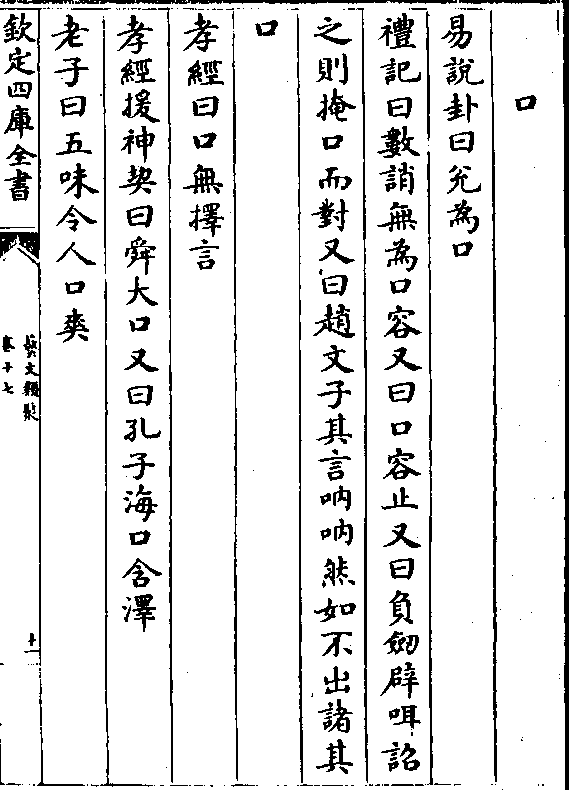 口
易說卦曰兊為口
禮記曰數誚無為口容又曰口容止又曰負劒辟咡詔
之則掩口而對又曰趙文子其言呐呐然如不出諸其
口
孝經曰口無擇言
孝經援神契曰舜大口又曰孔子海口含澤
老子曰五味令人口爽
欽定四庫全書
藝文類聚
卷十七
十一